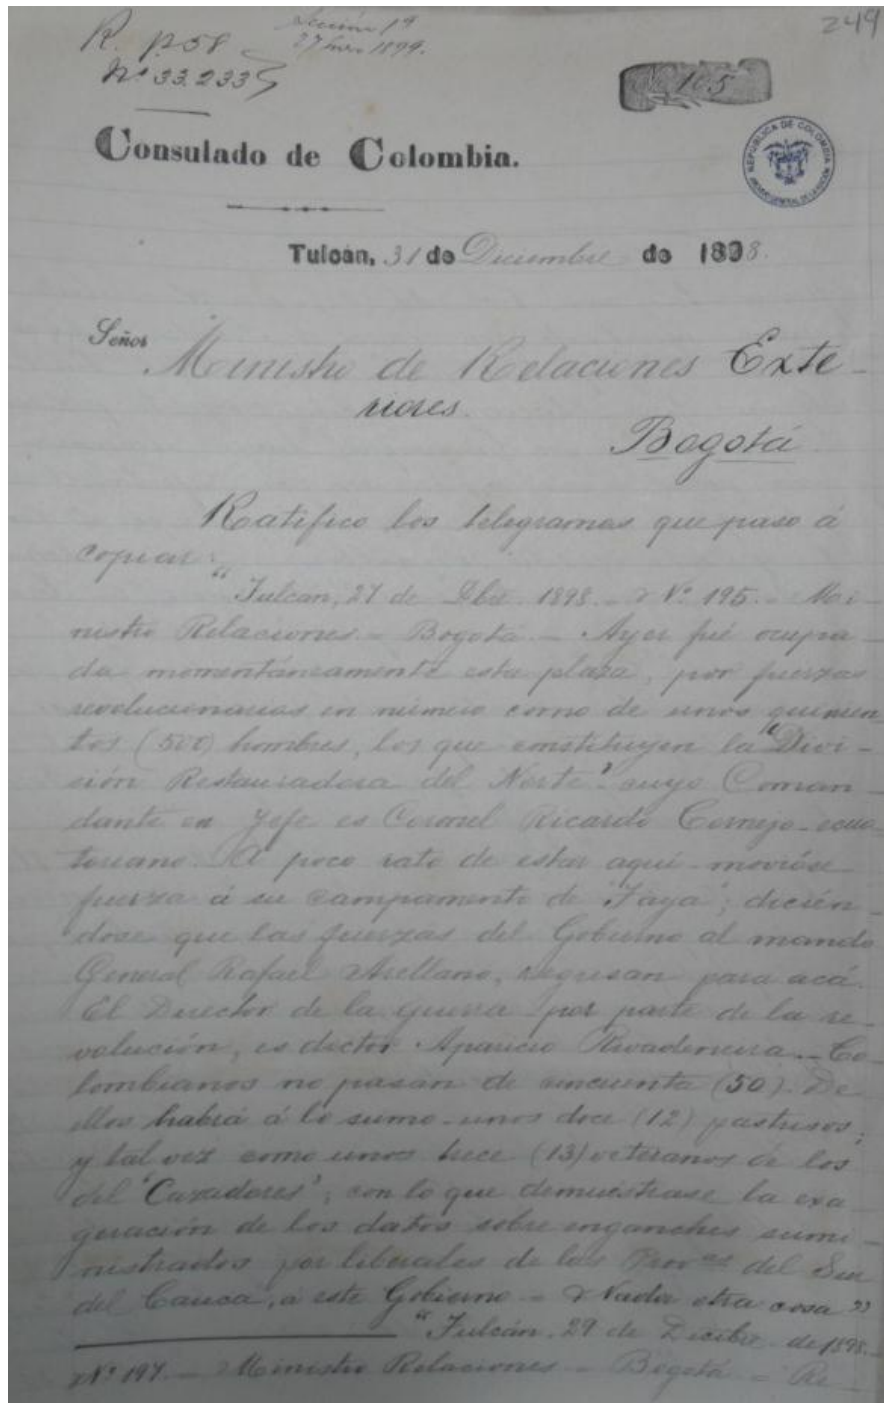 249
R. p. 58
Sección 1ª
27 1899.
Nº 33.233
Nº 105
Consulado de Colombia.
REPÚBLICA DE COLOMBIA
Tulcán, 31 de Diciembre de 1898.
Señor
Ministro de Relaciones Exte-
riores.
Bogotá
Ratifico los telegramas que paso á
copiar:
"Tulcan, 27 de Dbre. 1898. - Nº 195. - Mi-
nistro Relaciones. - Bogotá - Ayer fué ocupa-
da momentáneamente esta plaza, por fuerzas
revolucionarias en número como de unos quinien
tos (500) hombres, los que constituyen la "Divi-
sión Restauradora del Norte" cuyo Coman-
dante en Jefe es Coronel Ricardo Cornejo - ecua-
toriano. A poco rato de estar aquí - movióse
fuerza á su campamento de "Taya", dicién-
dose que las fuerzas del Gobierno al mando
General Rafael Arellano, regresan para acá.
El Director de la guerra por parte de la re-
volución, es doctor Aparicio Rivadeneira. - Co-
lombianos no pasan de cincuenta (50). De
ellos habrá á lo sumo - unos doce (12) pastusos;
y tal vez como unos trece (13) veteranos de los
del "Cazadores"; con lo que demuéstrase la exa-
geración de los datos sobre enganches sumi-
nistrados por liberales de las Provas del Sur
del Cauca, á este Gobierno - Nada otra cosa"
"Tulcán, 29 de Dicibre de 1898. -
Nº 197. - Ministro Relaciones - Bogotá - Re-